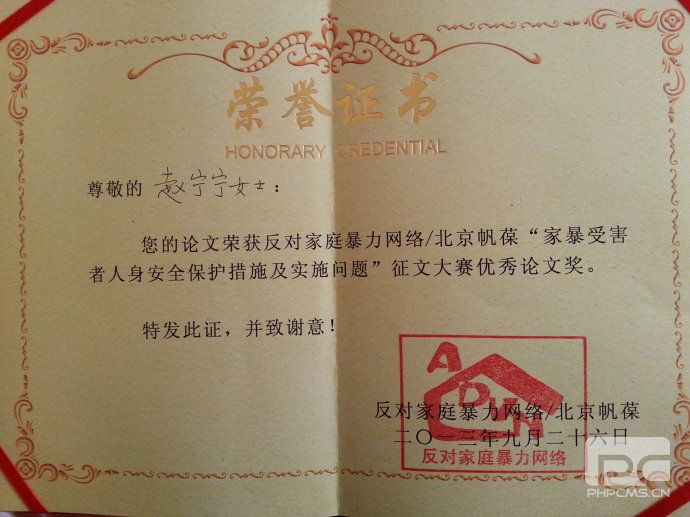 荣誉证书
HONORARY CREDENTIAL
尊敬的 赵宁宁女士：
您的论文荣获反对家庭暴力网络/北京帆葆“家暴受害
者人身安全保护措施及实施问题”征文大赛优秀论文奖。
特发此证，并致谢意！
ADVN
反对家庭暴力网络/北京帆葆
二〇一三年九月二十六日
反对家庭暴力网络
PC
PHPCMS.CN